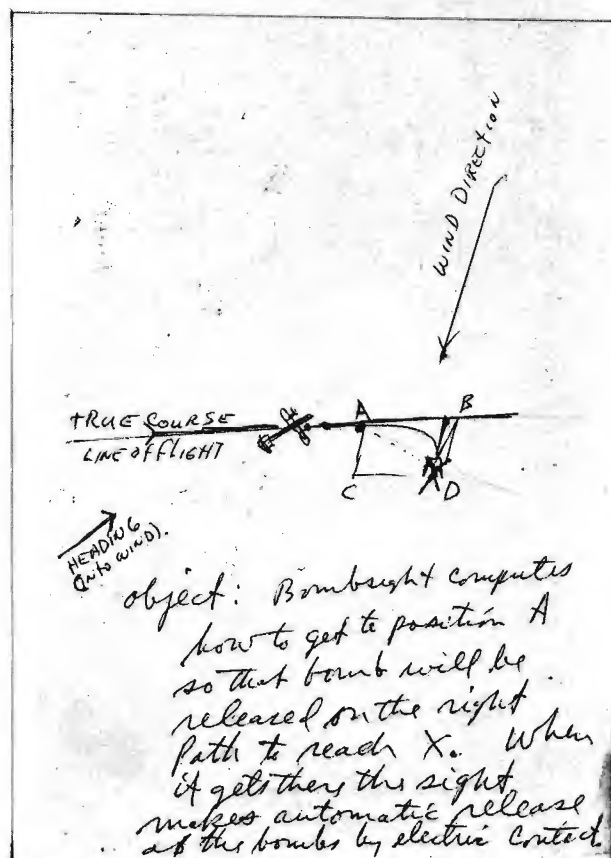 WIND DIRECTION
TRUE COURSE
LINE OF FLIGHT
A
B
C
X D
HEADING
(INTO WIND).
object: Bombsight computes
how to get to position A
so that bomb will be
released on the right
Path to reach X. When
it gets there the sight
makes automatic release
of the bombs by electric contact